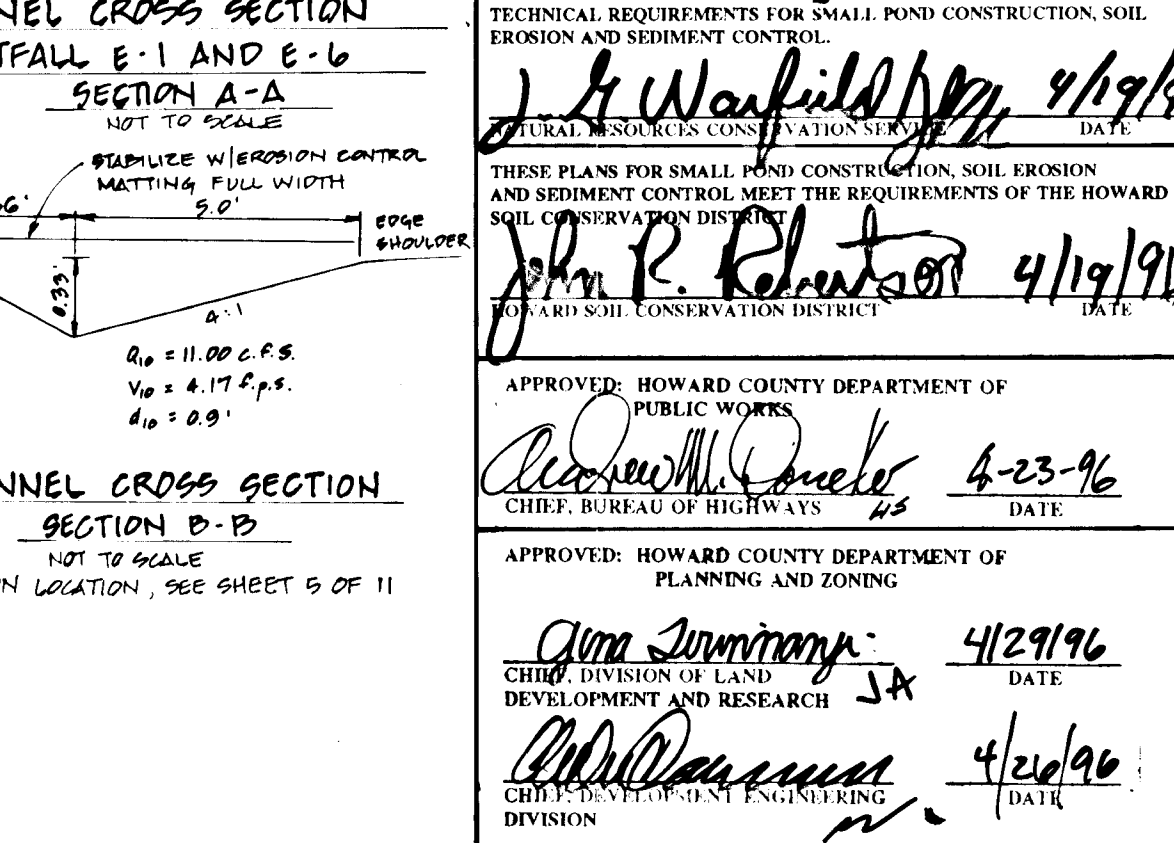 NEL CROSS SECTION
TFALL E-1 AND E-6
SECTION A-A
NOT TO SCALE
STABILIZE W/EROSION CONTROL
MATTING FULL WIDTH
6'
5.0'
EDGE
SHOULDER
0.33'
4:1
Q10 = 11.00 c.f.s.
V10 = 4.17 f.p.s.
d10 = 0.9'
NNEL CROSS SECTION
SECTION B-B
NOT TO SCALE
N LOCATION, SEE SHEET 5 OF 11
TECHNICAL REQUIREMENTS FOR SMALL POND CONSTRUCTION, SOIL
EROSION AND SEDIMENT CONTROL.
J. G. Warfield 4/19/9
NATURAL RESOURCES CONSERVATION SERVICE DATE
THESE PLANS FOR SMALL POND CONSTRUCTION, SOIL EROSION
AND SEDIMENT CONTROL MEET THE REQUIREMENTS OF THE HOWARD
SOIL CONSERVATION DISTRICT
John R. Robertson 4/19/96
HOWARD SOIL CONSERVATION DISTRICT DATE
APPROVED: HOWARD COUNTY DEPARTMENT OF
PUBLIC WORKS
Andrew M. 4-23-96
CHIEF, BUREAU OF HIGHWAYS HS DATE
APPROVED: HOWARD COUNTY DEPARTMENT OF
PLANNING AND ZONING
Gina 4/29/96
CHIEF, DIVISION OF LAND DATE
DEVELOPMENT AND RESEARCH JA
4/26/96
CHIEF, DEVELOPMENT ENGINEERING DATE
DIVISION